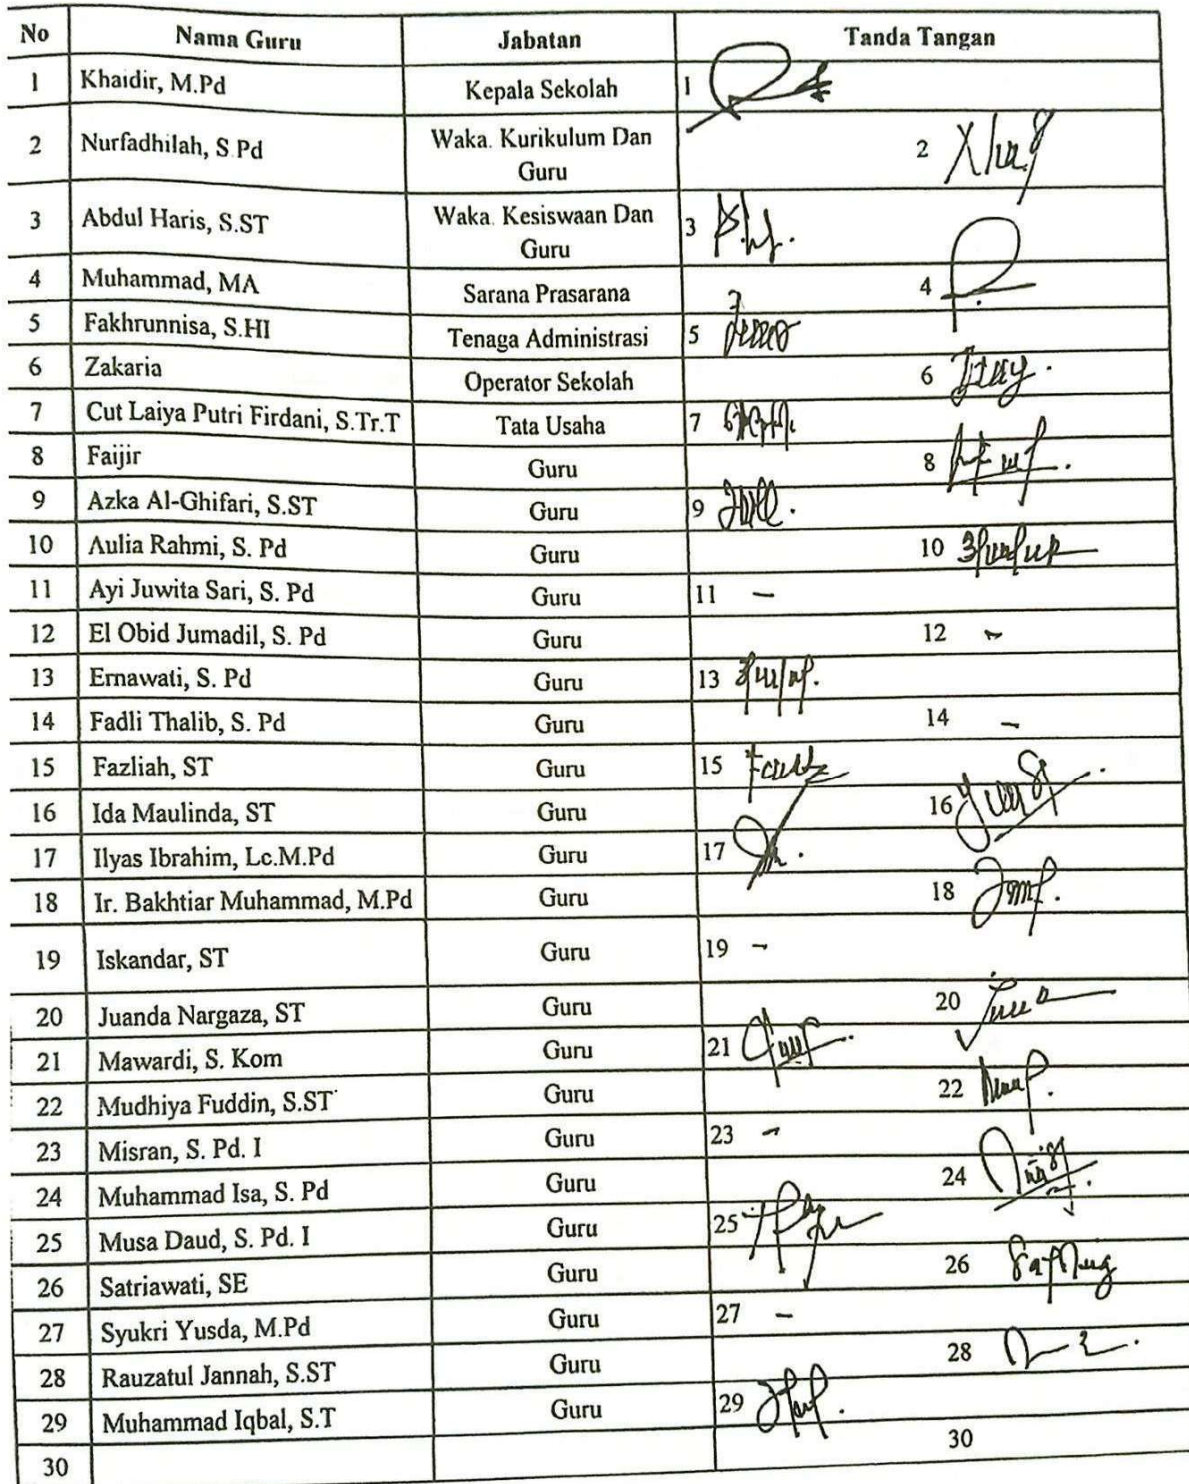 No Nama Guru Jabatan Tanda Tangan
1 Khaidir, M.Pd Kepala Sekolah 1
2 Nurfadhilah, S.Pd Waka. Kurikulum Dan Guru 2
3 Abdul Haris, S.ST Waka. Kesiswaan Dan Guru 3
4 Muhammad, MA Sarana Prasarana 4
5 Fakhrunnisa, S.HI Tenaga Administrasi 5
6 Zakaria Operator Sekolah 6
7 Cut Laiya Putri Firdani, S.Tr.T Tata Usaha 7
8 Faijir Guru 8
9 Azka Al-Ghifari, S.ST Guru 9
10 Aulia Rahmi, S. Pd Guru 10
11 Ayi Juwita Sari, S. Pd Guru 11 -
12 El Obid Jumadil, S. Pd Guru 12 -
13 Ernawati, S. Pd Guru 13
14 Fadli Thalib, S. Pd Guru 14 -
15 Fazliah, ST Guru 15
16 Ida Maulinda, ST Guru 16
17 Ilyas Ibrahim, Lc.M.Pd Guru 17
18 Ir. Bakhtiar Muhammad, M.Pd Guru 18
19 Iskandar, ST Guru 19 -
20 Juanda Nargaza, ST Guru 20
21 Mawardi, S. Kom Guru 21
22 Mudhiya Fuddin, S.ST Guru 22
23 Misran, S. Pd. I Guru 23 -
24 Muhammad Isa, S. Pd Guru 24
25 Musa Daud, S. Pd. I Guru 25
26 Satriawati, SE Guru 26
27 Syukri Yusda, M.Pd Guru 27 -
28 Rauzatul Jannah, S.ST Guru 28
29 Muhammad Iqbal, S.T Guru 29
30 30